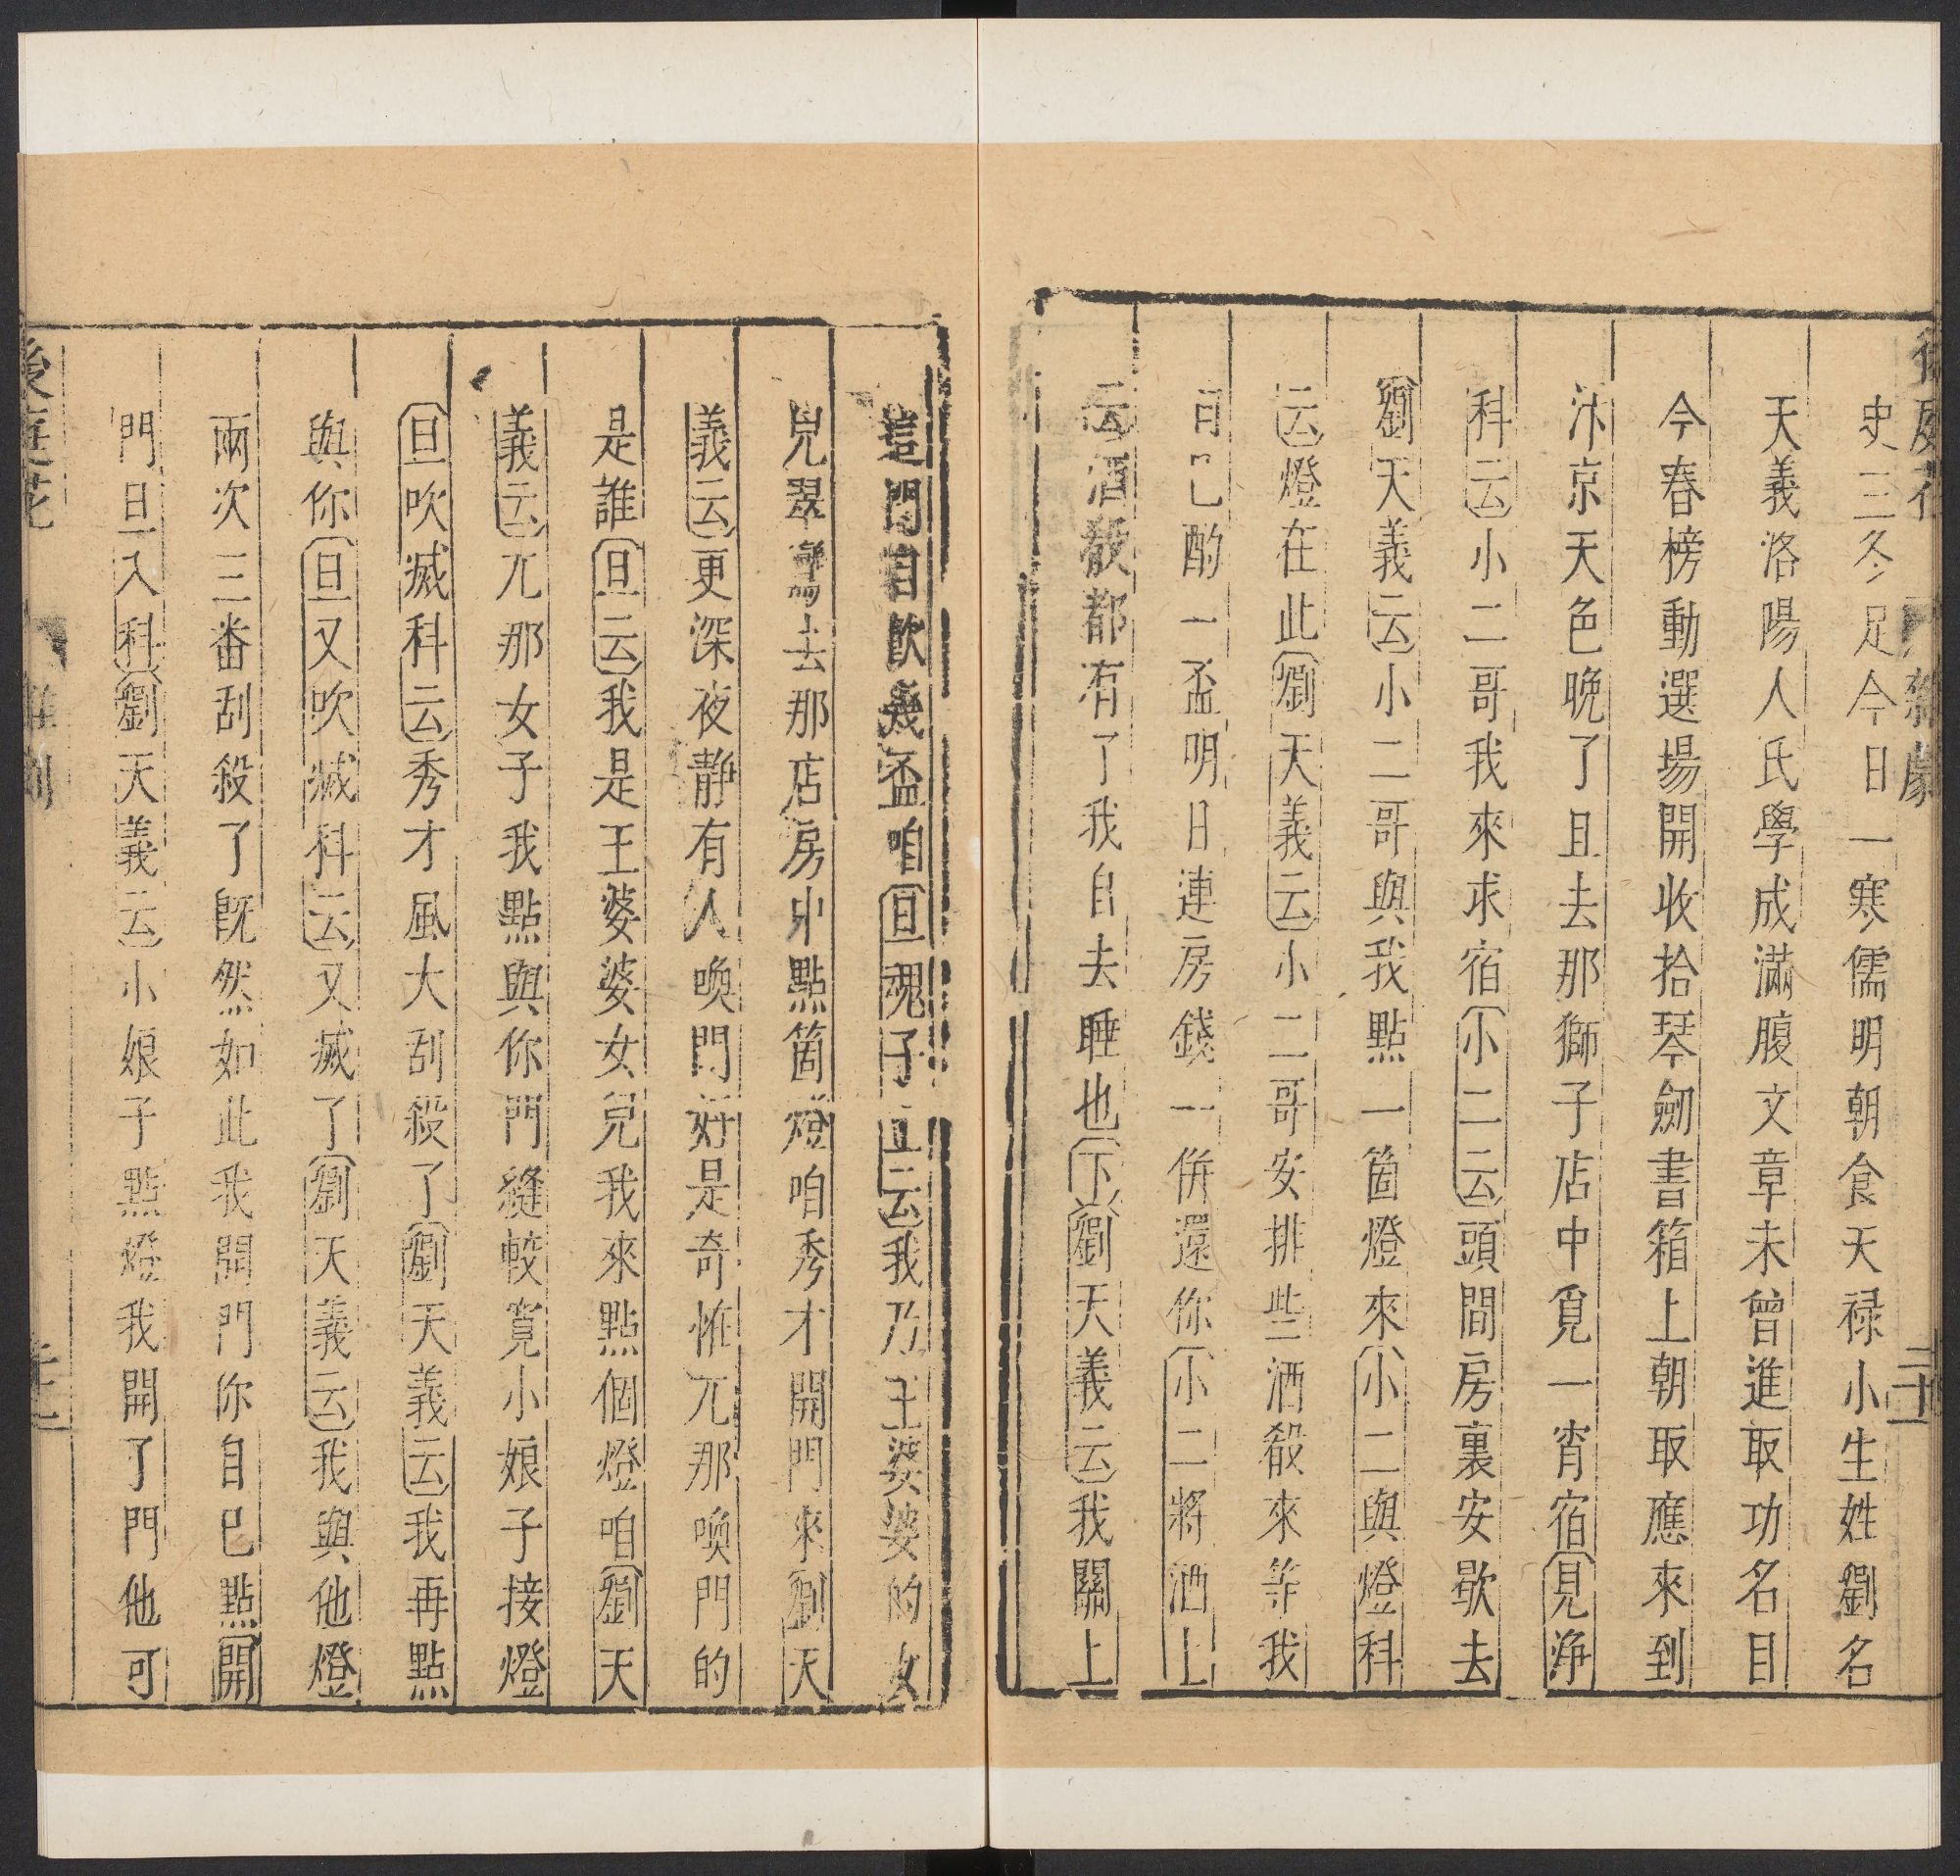 後庭花 雜劇 二十
史三冬足今日一寒儒明朝食天祿小生姓劉名
天義洛陽人氏學成滿腹文章未曾進取功名目
今春榜動選場開收拾琴劒書箱上朝取應來到
汴京天色晚了且去那獅子店中覓一宵宿見淨
科云小二哥我來求宿小二云頭間房裏安歇去
劉天義云小二哥與我點一箇燈來小二與燈科
云燈在此劉天義云小二哥安排些酒殽來等我
自己酌一盃明日連房錢一併還你小二將酒上
云酒殽都有了我自去睡也下劉天義云我關上
這門自飲幾盃咱旦魂子上云我乃王婆婆的女
兒翠鸞去那店房中點箇燈咱秀才開門來劉天
義云更深夜靜有人喚門好是奇恠兀那喚門的
是誰旦云我是王婆婆女兒我來點個燈咱劉天
義云兀那女子我點與你門縫較寬小娘子接燈
旦吹滅科云秀才風大刮殺了劉天義云我再點
與你旦又吹滅科云又滅了劉天義云我與他燈
兩次三番刮殺了旣然如此我開門你自己點開
門旦入科劉天義云小娘子點燈我開了門他可
後庭花 雜劇